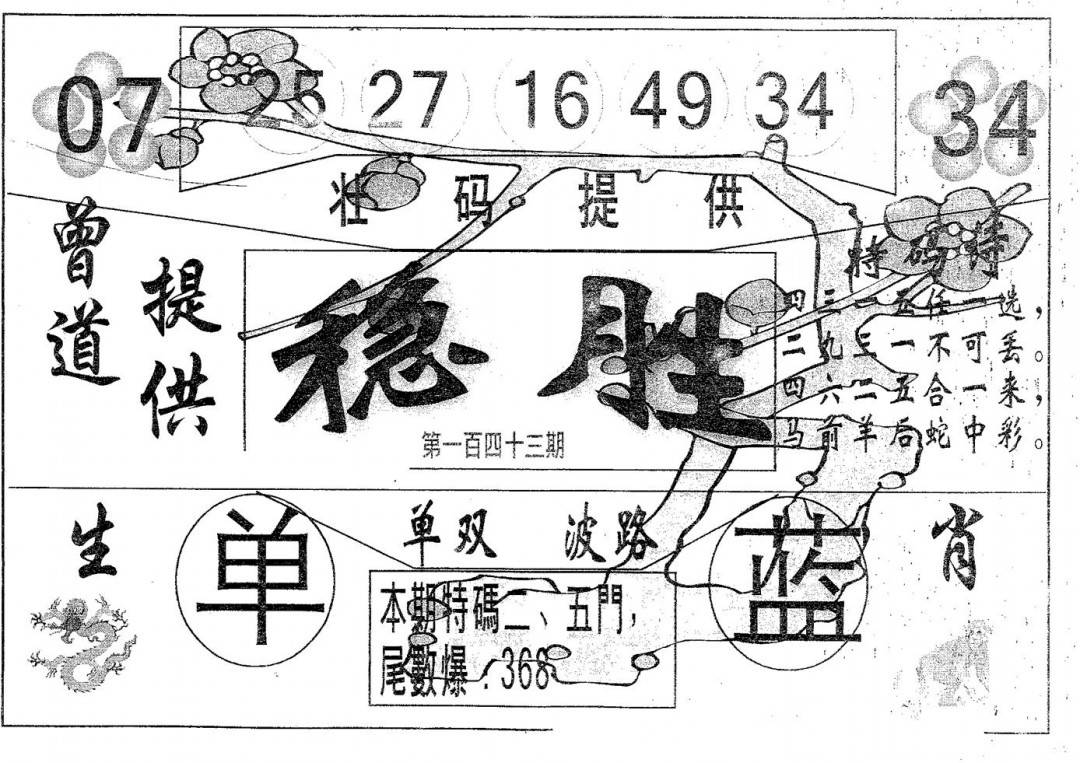 07 25 27 16 49 34 34
壮码提供
曾道
提供
稳胜
第一百四十三期
特码诗
四三一五任一选，
二九三一不可丢。
四六二五合一来，
马前羊后蛇中彩。
生肖
单双 波路
单
蓝
本期特碼二、五門，
尾數爆：368